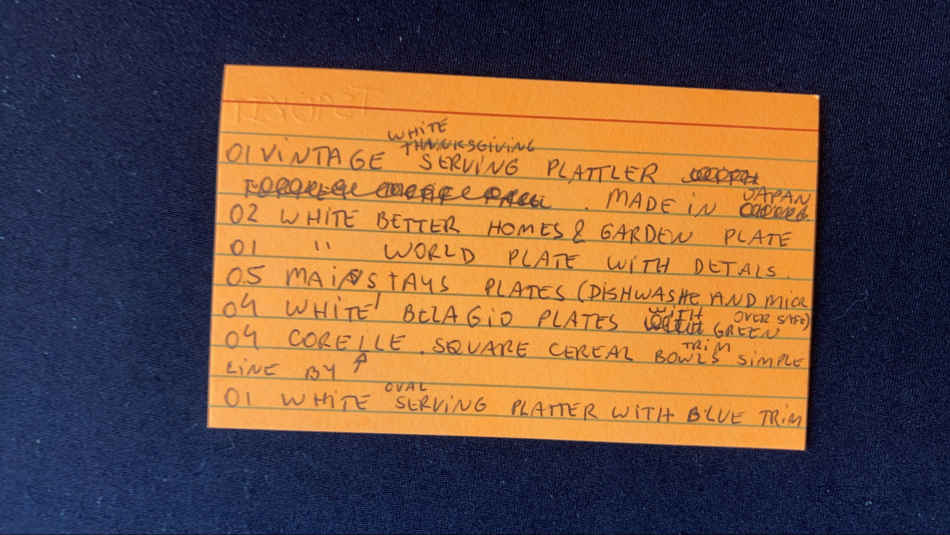 WHITE
THANKSGIVING
01 VINTAGE SERVING PLATTLER
. MADE IN JAPAN
02 WHITE BETTER HOMES & GARDEN PLATE
01 " WORLD PLATE WITH DETALS.
05 MAINSTAYS PLATES (DISHWASHE AND MICR
OVER SAFE)
04 WHITE BELAGIO PLATES WITH GREEN
TRIM
04 CORELLE. SQUARE CEREAL BOWLS SIMPLE
LINE BY ↑
OVAL
01 WHITE SERVING PLATTER WITH BLUE TRIM